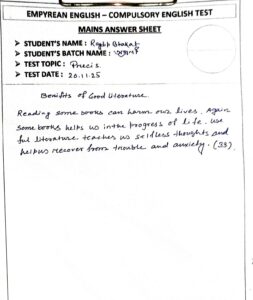 EMPYREAN ENGLISH – COMPULSORY ENGLISH TEST
MAINS ANSWER SHEET
➤ STUDENT'S NAME :
➤ STUDENT'S BATCH NAME :
➤ TEST TOPIC : Precis.
➤ TEST DATE : 20.11.25
Benifits of Good Literature
Reading some books can harm our lives. Again
some books helps us in the progress of life. Use
ful literature teaches us selfless thoughts and
helps us recover from trouble and anxiety. (33)